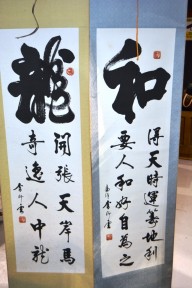 和
得天時運籌地利
要人和好自為之
龍
開張天岸馬
奇逸人中龍